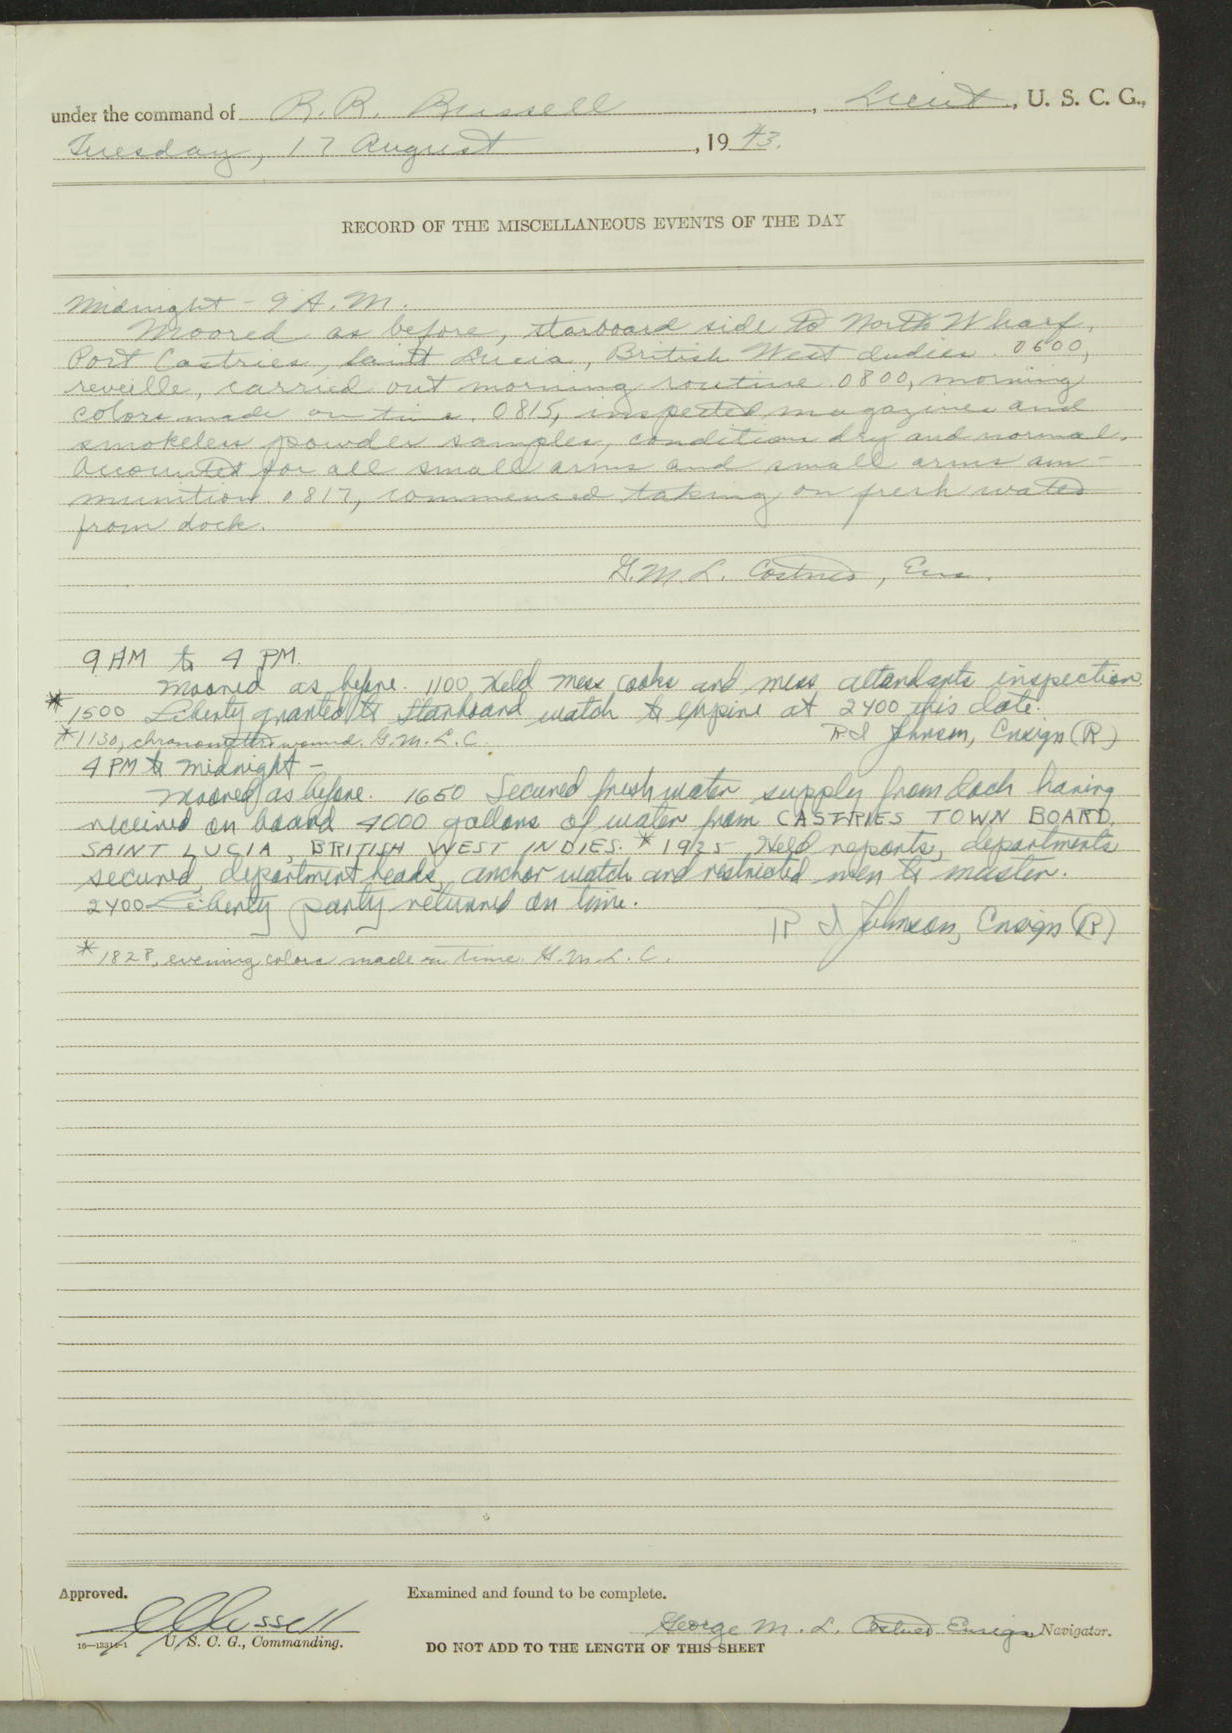 under the command of R. R. Russell, Lieut, U. S. C. G.,
Tuesday, 17 August, 1943.
RECORD OF THE MISCELLANEOUS EVENTS OF THE DAY
Midnight - 9 A.M.
Moored as before, starboard side to North Wharf,
Port Castries, Saint Lucia, British West Indies. 0600,
reveille, carried out morning routine. 0800, morning
colors made on time. 0815, inspected magazines and
smokeless powder samples, condition dry and normal.
Accounted for all small arms and small arms am-
munition. 0817, commenced taking on fresh water
from dock.
G. M. L. Costner, Ens.
9 AM to 4 PM.
Moored as before. 1100 Held mess cooks and mess attendants inspection
* 1500 Liberty granted to starboard watch to expire at 2400 this date.
* 1130, chronometers wound. G.M.L.C. R I Johnson, Ensign (R)
4 PM to Midnight -
Moored as before. 1650 Secured fresh water supply from dock having
received on board 4000 gallons of water from CASTRIES TOWN BOARD,
SAINT LUCIA, BRITISH WEST INDIES. * 1925 Held reports, departments
secured, department heads, anchor watch and restricted men to muster.
2400 Liberty party returned on time.
R I Johnson, Ensign (R)
* 1828, evening colors made on time. G.M.L.C.
Approved.
Examined and found to be complete.
Russell
George M. L. Costner Ensign Navigator.
U. S. C. G., Commanding.
DO NOT ADD TO THE LENGTH OF THIS SHEET